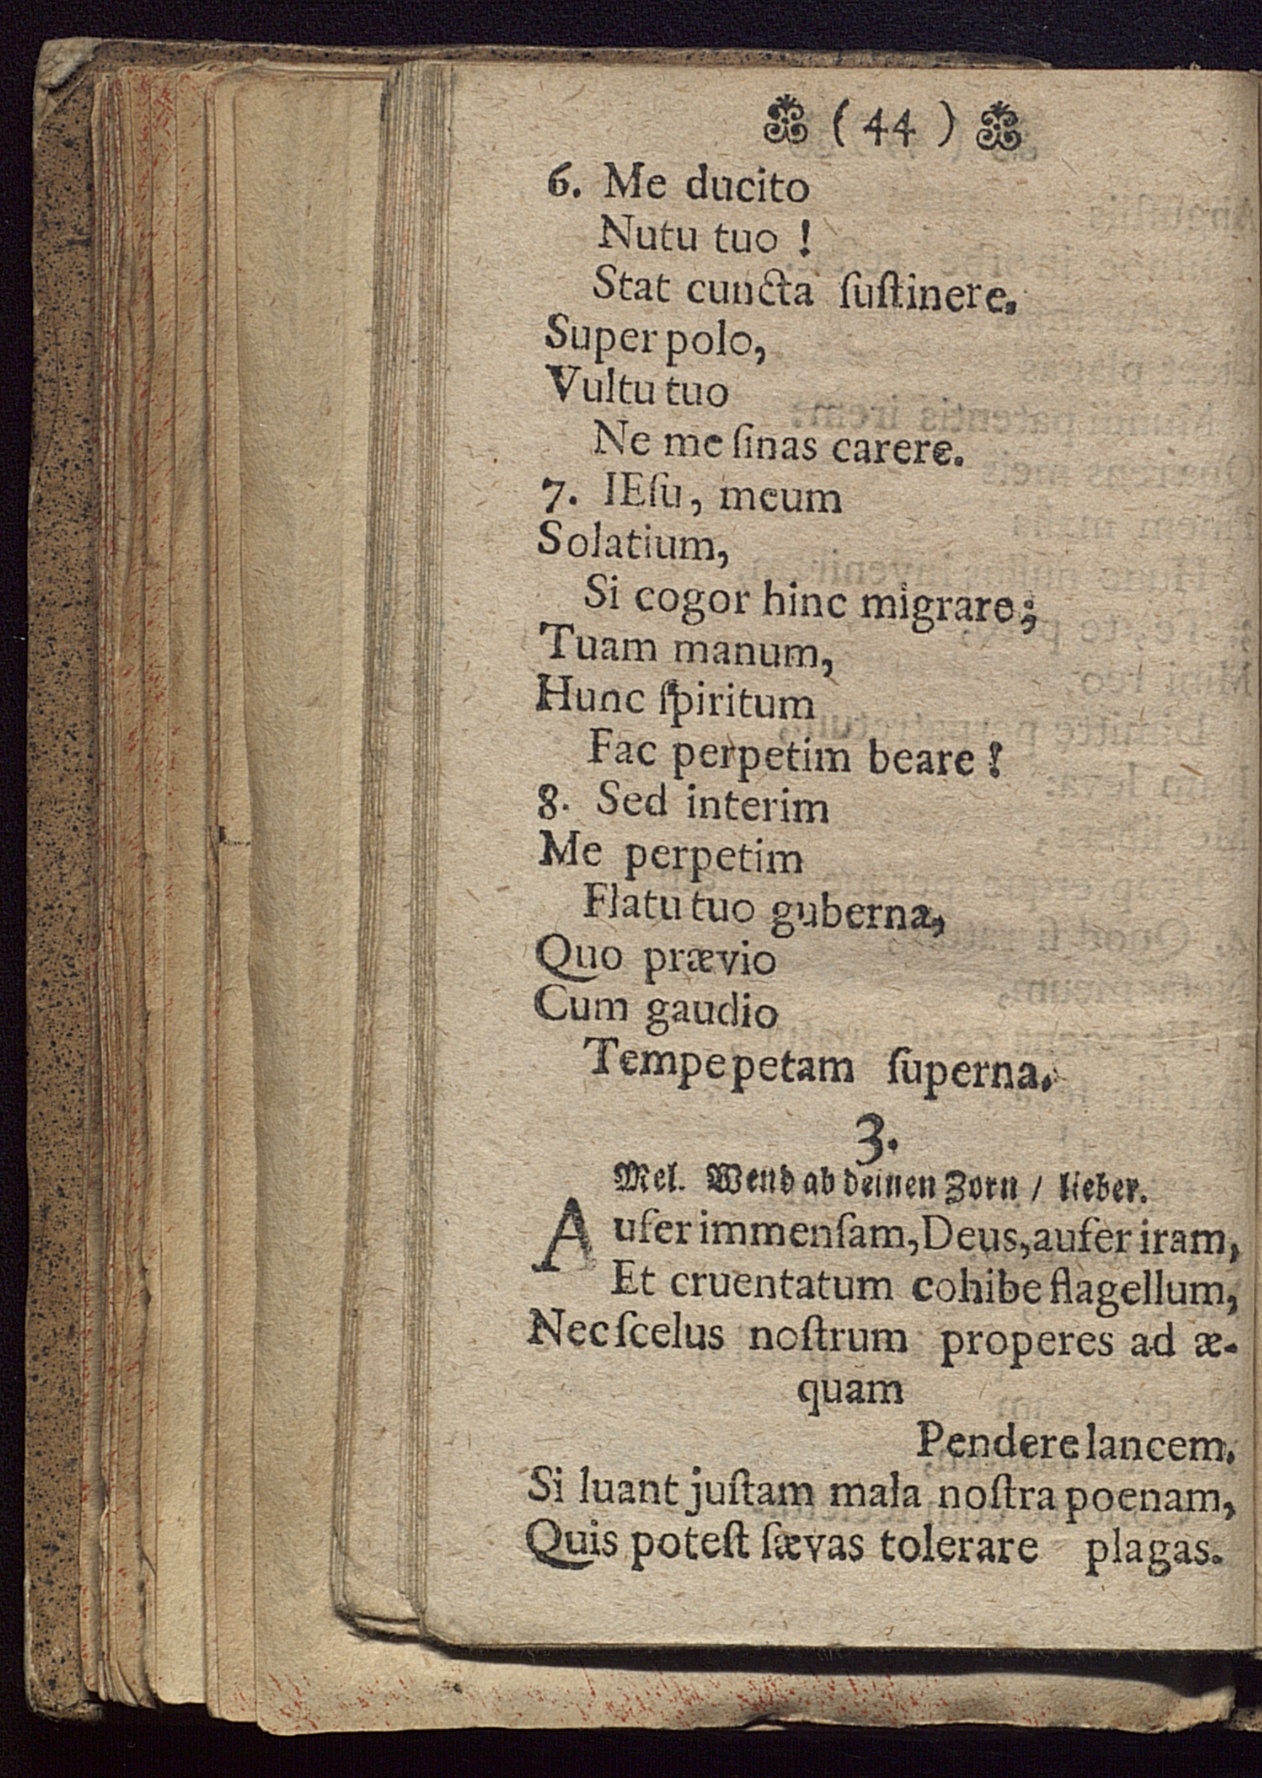 ( 44 )
6. Me ducito
Nutu tuo !
Stat cuncta ſuſtinere,
Super polo,
Vultu tuo
Ne me ſinas carere.
7. IEſu, meum
Solatium,
Si cogor hinc migrare;
Tuam manum,
Hunc ſpiritum
Fac perpetim beare !
8. Sed interim
Me perpetim
Flatu tuo guberna,
Quo prævio
Cum gaudio
Tempe petam ſuperna.
3.
Mel. Wend ab deinen Zorn / lieber.
Aufer immenſam, Deus, aufer iram,
Et cruentatum cohibe flagellum,
Nec ſcelus noſtrum properes ad æ-
quam
Pendere lancem.
Si luant juſtam mala noſtra poenam,
Quis poteſt ſævas tolerare plagas.